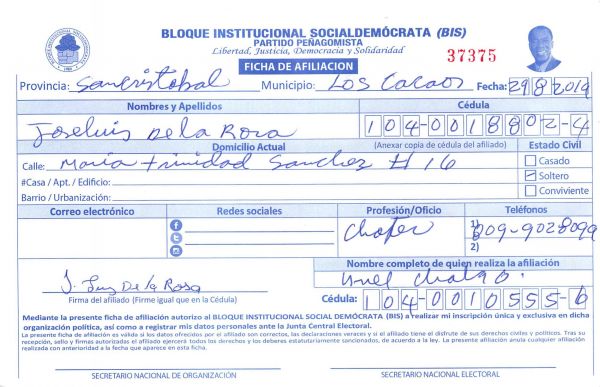 BLOQUE INSTITUCIONAL SOCIALDEMÓCRATA (BIS)
PARTIDO PEÑAGOMISTA
Libertad, Justicia, Democracia y Solidaridad
37375
FICHA DE AFILIACION
Provincia: Sancristobal Municipio: Los Cacaos Fecha: 29 8 2019
Nombres y Apellidos Cédula
Joseluis De la Rosa 104-0018802-4
Domicilio Actual (Anexar copia de cédula del afiliado) Estado Civil
Calle: María trinidad Sanchez # 16 Casado
#Casa / Apt. / Edificio: Soltero
Barrio / Urbanización: Conviviente
Correo electrónico Redes sociales Profesión/Oficio Teléfonos
Chofer 1) 809-9028099
2)
Nombre completo de quien realiza la afiliación
J. Luis De la Rosa
Firma del afiliado (Firme igual que en la Cédula) Cédula: 104-0010555-6
Mediante la presente ficha de afiliación autorizo al BLOQUE INSTITUCIONAL SOCIAL DEMÓCRATA (BIS) a realizar mi inscripción única y exclusiva en dicha
organización política, así como a registrar mis datos personales ante la Junta Central Electoral.
La presente ficha de afiliación es válida si los datos ofrecidos por el afiliado son correctos, las declaraciones veraces y si el afiliado tiene el disfrute de sus derechos civiles y políticos. Tras su
recepción, sello y firmas autorizadas el afiliado ejercerá todos los derechos y los deberes estatutariamente sancionados, de acuerdo a la ley. La presente afiliación anula cualquier afiliación
realizada con anterioridad a la fecha que aparece en esta ficha.
SECRETARIO NACIONAL DE ORGANIZACIÓN SECRETARIO NACIONAL ELECTORAL